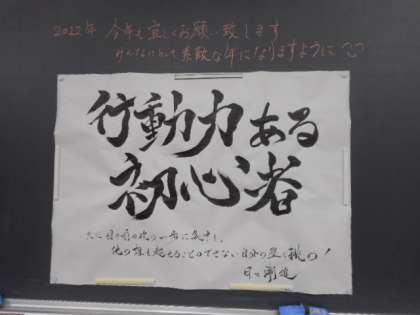 2022年 今年も宜しくお願い致します
みんなにとって素敵な年になりますように
行動力ある
初心者
目の前の 一歩に集中し、
他の誰も超えることのできない自分の 挑め!
日々漸進